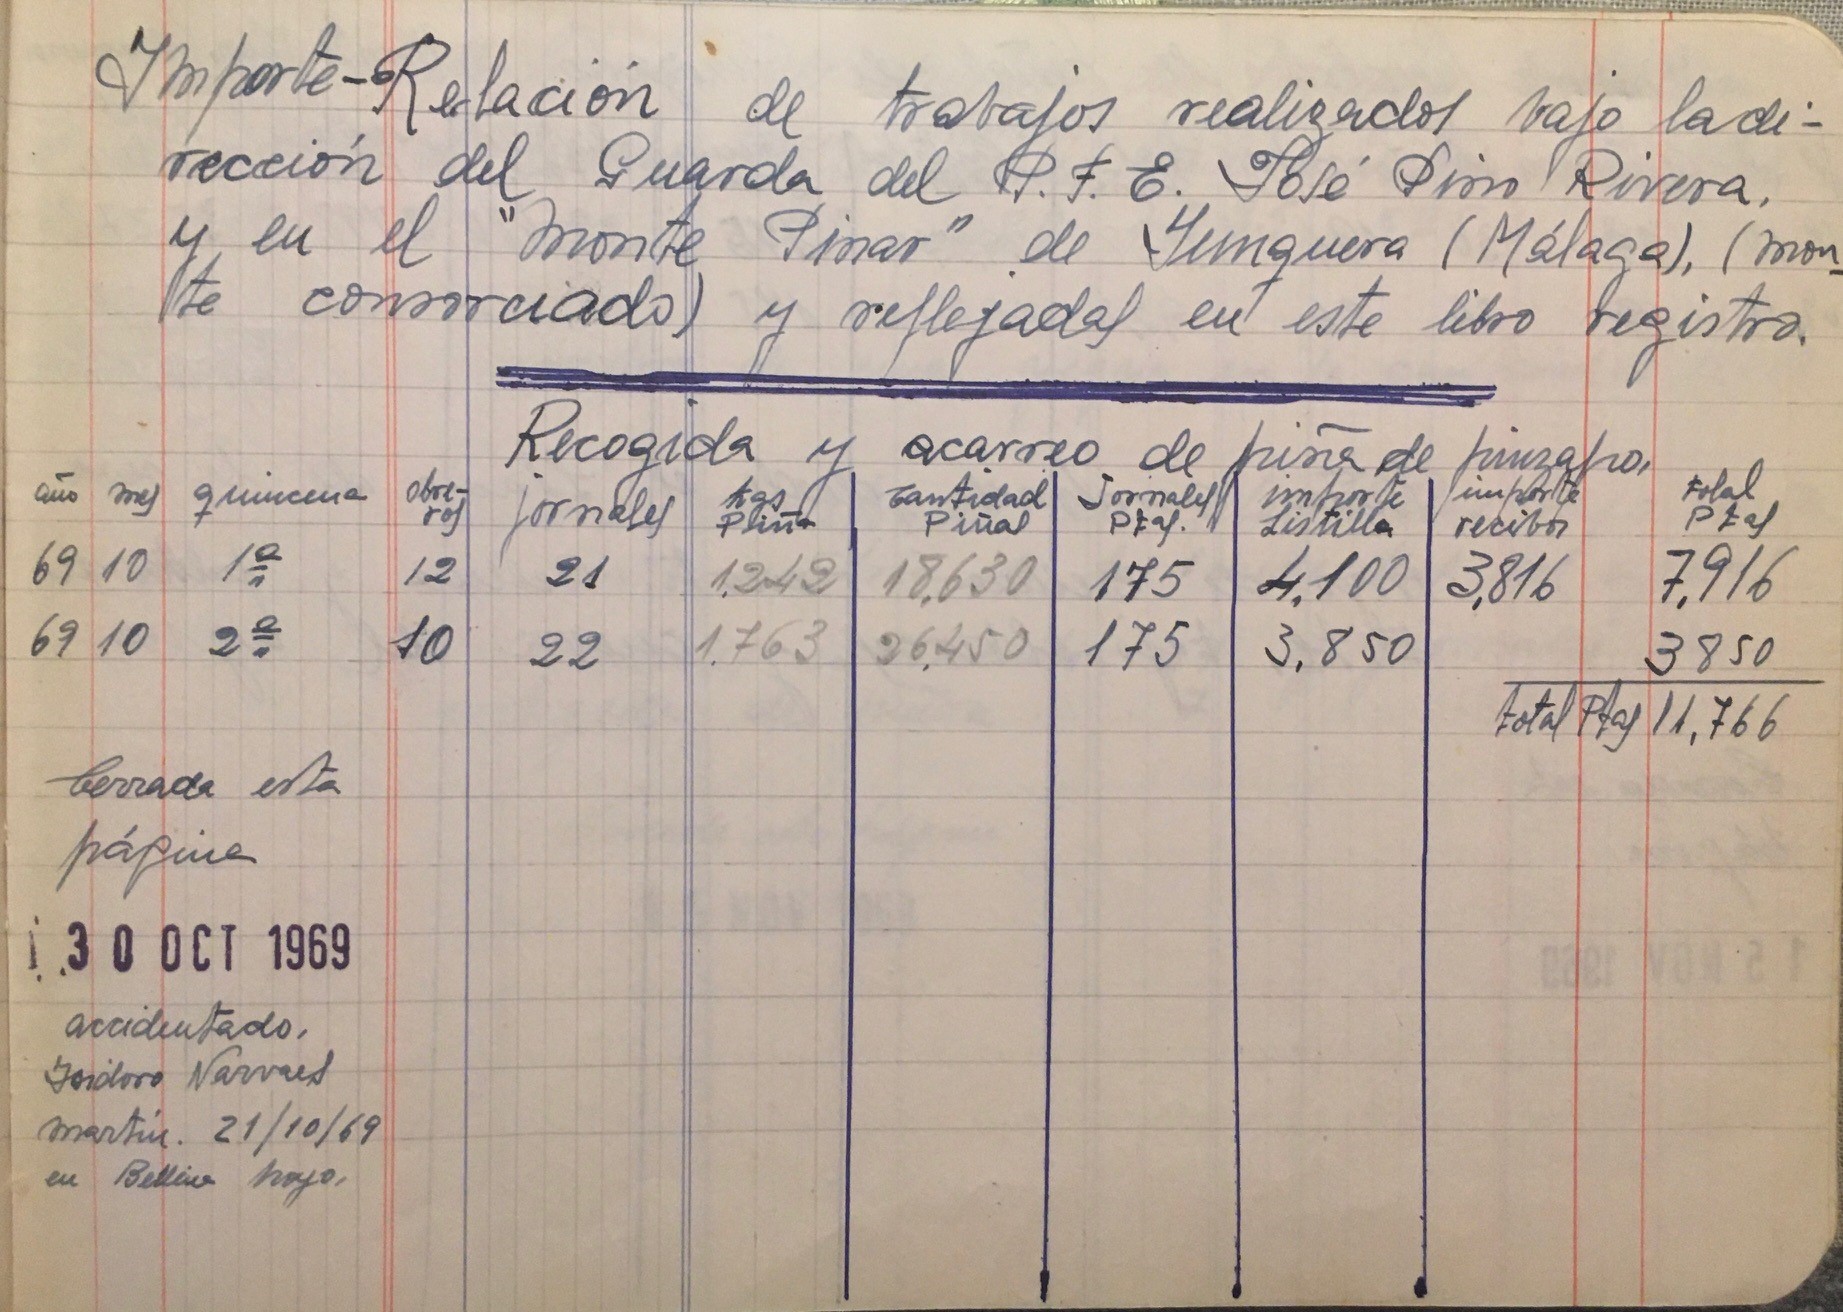 Importe-Relación de trabajos realizados bajo la di-
rección del Guarda del P.F.E. José Pino Rivera,
y en el "Monte Pinar" de Yunquera (Málaga), (mon-
te consorciado) y reflejadas en este libro registro.
Recogida y acarreo de piña de pinzapo.
año mes quincena obre-ros jornales Kgs Piña Cantidad Piñas Jornales Ptas. importe Listilla importe recibos total Ptas
69 10 1ª 12 21 1.242 18.630 175 4,100 3,816 7,916
69 10 2ª 10 22 1.763 26.450 175 3,850 3850
total Ptas 11,766
Cerrada esta
página
30 OCT 1969
accidentado,
Isidoro Narvaes
Martín. 21/10/69
en Bellina hoyo.
15 NOV 1969